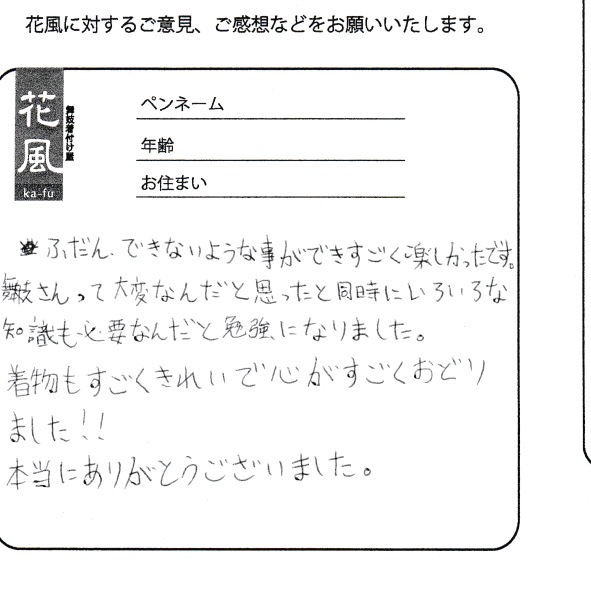 花風に対するご意見、ご感想などをお願いいたします。
花風
舞妓着付け屋
ka-fu
ペンネーム
年齢
お住まい
ふだん、できないような事ができすごく楽しかったです。
舞妓さんって大変なんだと思ったと同時にいろいろな
知識も必要なんだと勉強になりました。
着物もすごくきれいで心がすごくおどり
ました!!
本当にありがとうございました。